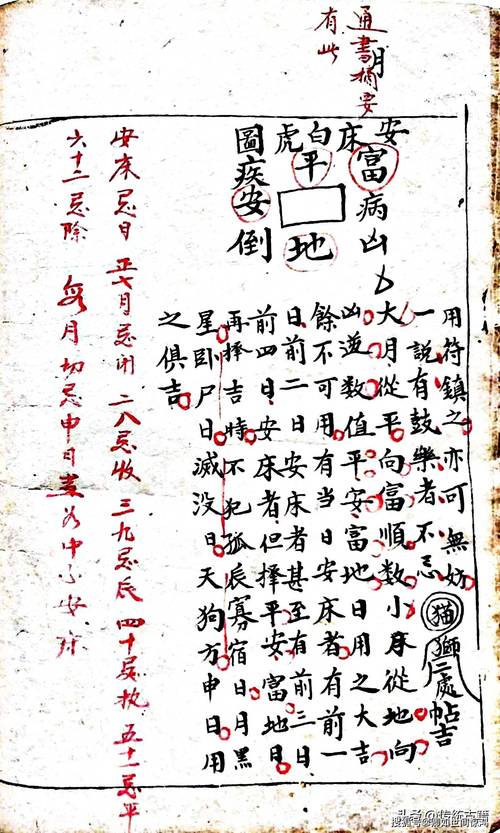 通書摘要
有此
月
安床白虎圖
富 平 疾
病 安
凶 地 倒
用符鎮之亦可無妨
一說有鼓樂者不忌
猫
獅二處帖吉
大月從平向富順數小月從地向
凶逆數值平安富地日用之大吉
餘不可用有當日安床者有前一
日前二日安床者甚至有前三日
前四日安床者但擇平安富地日
再擇吉時不犯孤辰寡宿日月黑
星臥尸日滅没日天狗方申日用
之俱吉
安床忌日 正七月忌闭 二八忌收 三九忌辰 四十忌执 五十一忌平
六十二忌除 每月切忌申日
头条@传统古籍